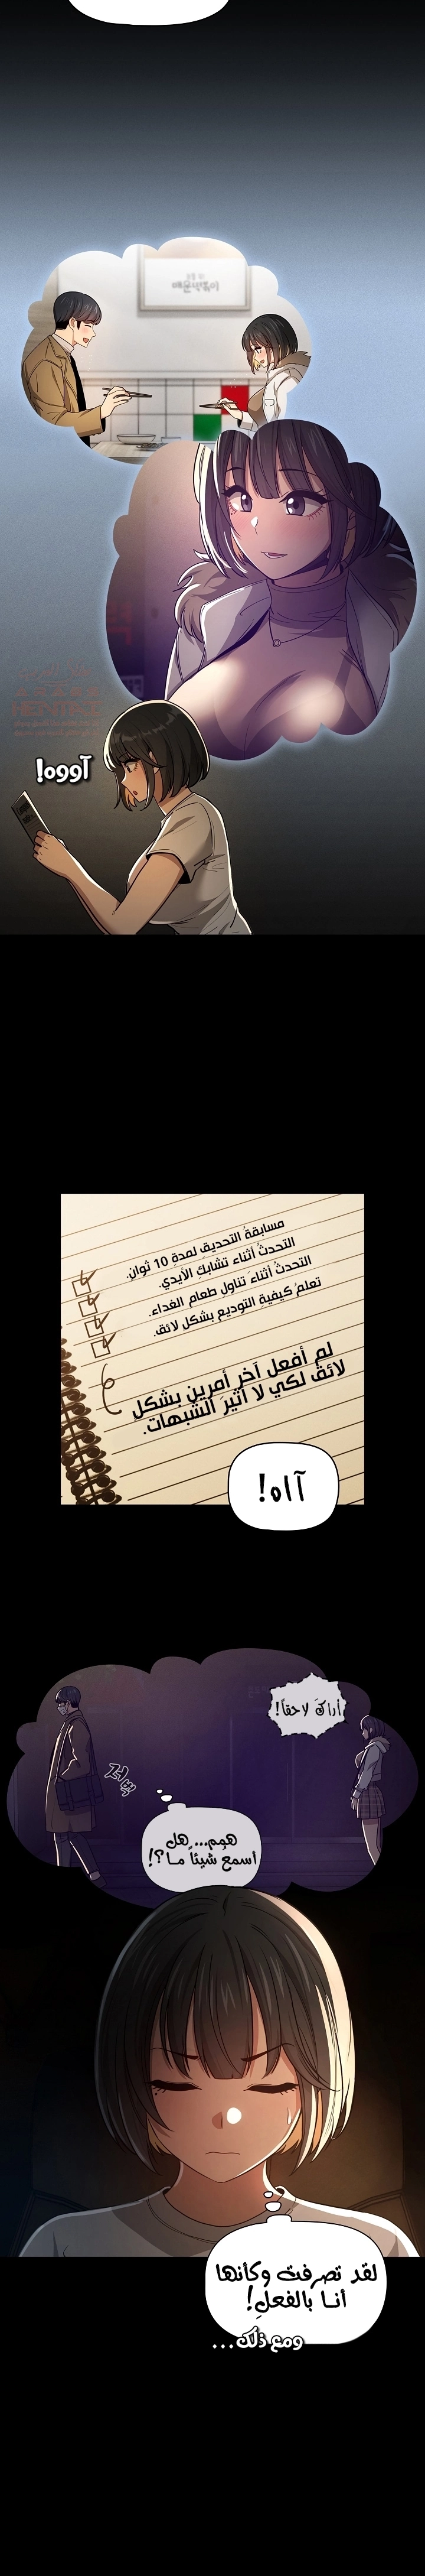 매운떡볶이
ARABS
HENTAI
آووه!
مسابقةُ التحديق لمدةِ 10 ثوانٍ.
التحدثُ أثناء تشابكِ الأيدي.
التحدثُ أثناءَ تناولِ طعامِ الغداء.
تعلمُ كيفيةِ التوديعِ بشكلٍ لائق.
لم أفعل آخر أمرين بشكلٍ
لائق لكي لا أثيرَ الشبهات.
آاه!
أراكَ لاحقاً!
همم... هل
اسمعُ شيئاً ما؟!
لقد تصرفت وكأنها
أنا بالفعلِ!
ومع ذلك...